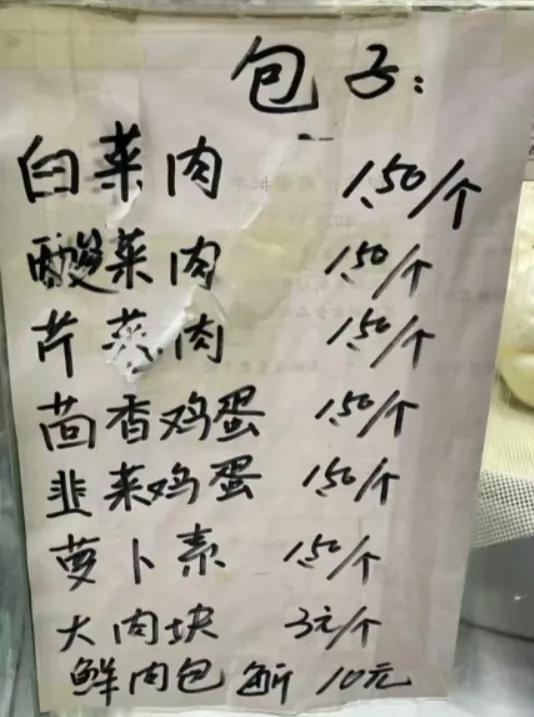 包子:
白菜肉 1.50/个
酸菜肉 1.50/个
芹菜肉 1.50/个
茴香鸡蛋 1.50/个
韭菜鸡蛋 1.50/个
萝卜素 1.50/个
大肉块 3元/个
鲜肉包 10元